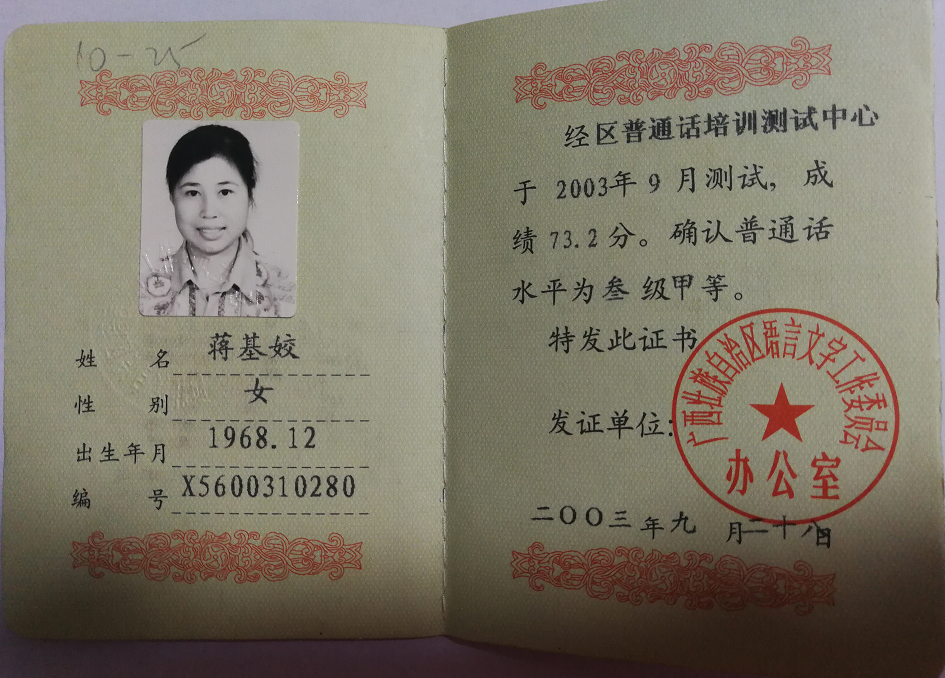 10-25
姓名 蒋基姣
性别 女
出生年月 1968.12
编号 X5600310280
经区普通话培训测试中心
于 2003年 9 月测试，成
绩 73.2 分。确认普通话
水平为叁 级甲等。
特发此证书
发证单位:
广西壮族自治区语言文字工作委员会
办公室
二〇〇三年九月二十八日